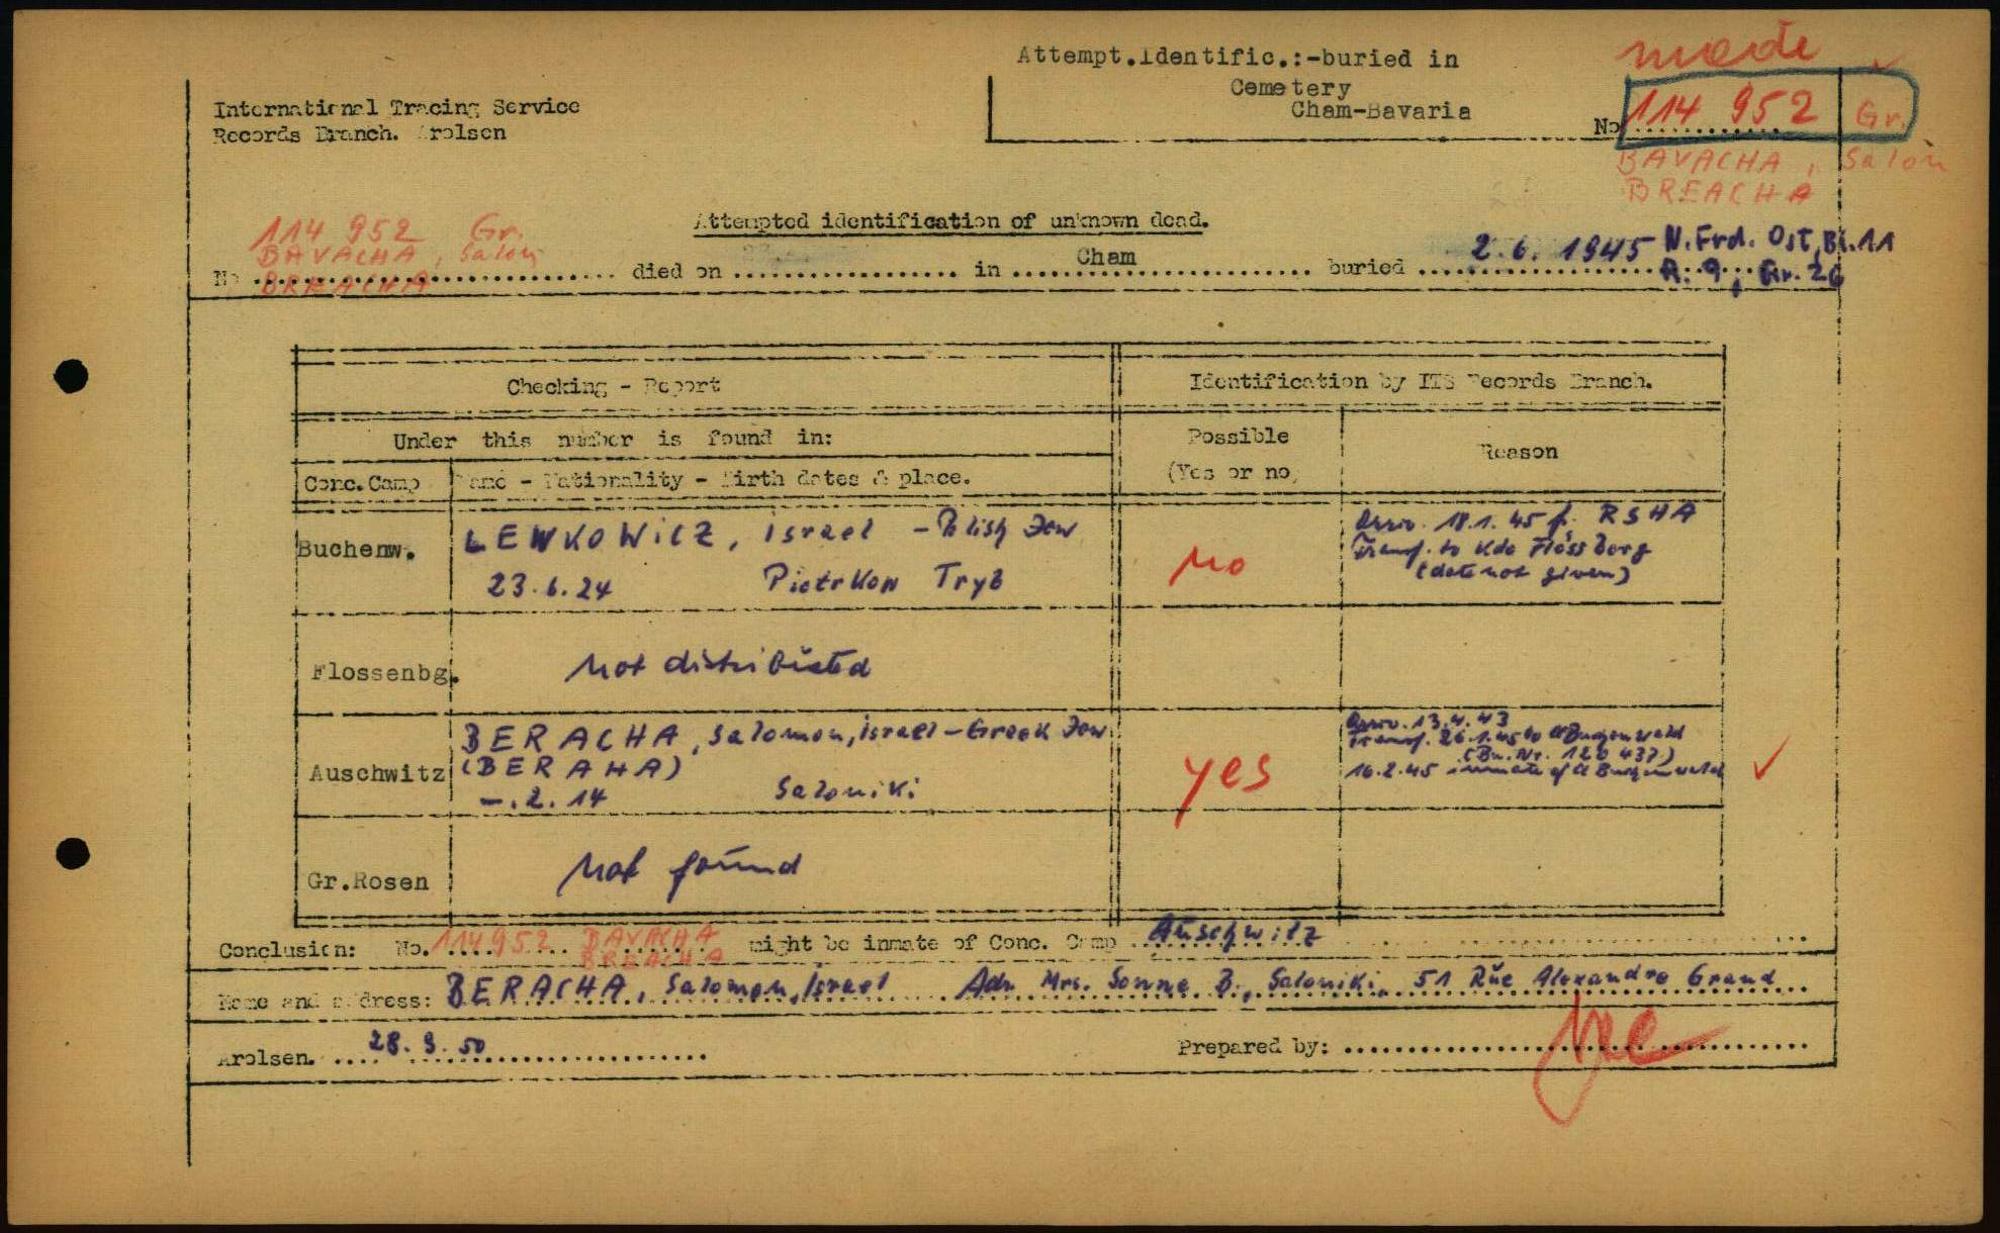 Attempt.Identific.:-buried in
Cemetery
Cham-Bavaria
made
No 114 952 Gr.
BAVACHA, Salon
BREACHA
International Tracing Service
Records Branch. Arolsen
Attempted identification of unknown dead.
114 952 Gr.
BAVACHA, Salon
BREACHA
No ........ died on ........ in Cham ........ buried 2.6.1945 N.Frd. Ost, Bl.11
R. 9, Gr. 26
Checking - Report
Identification by ITS Records Branch.
Under this number is found in:
Possible
(Yes or no)
Reason
Conc.Camp
Name - Nationality - Birth dates & place.
Buchenw.
LEWKOWICZ, Israel - Polish Jew
23.6.24 Piotrkow Tryb
No
Arriv. 18.1.45 f. RSHA
Transf. to Kdo Flossberg
(date not given)
Flossenbg.
Not distributed
Auschwitz
BERACHA, Salomon, Israel - Greek Jew
(BERAHA)
-.2.14 Saloniki
yes
Arriv. 13.4.43
Transf. 26.1.45 to Cl Buchenwald
(Bu. Nr. 120 437)
16.2.45 inmate of Cl Buchenwald
Gr.Rosen
Not found
Conclusion: No. 114952 BAVACHA
BREACHA
might be inmate of Conc. Camp Auschwitz
Name and address: BERACHA, Salomon, Israel Adr. Mrs. Sonne B., Saloniki, 51 Rue Alexandre Grand
Arolsen. 28. 9. 50
Prepared by: